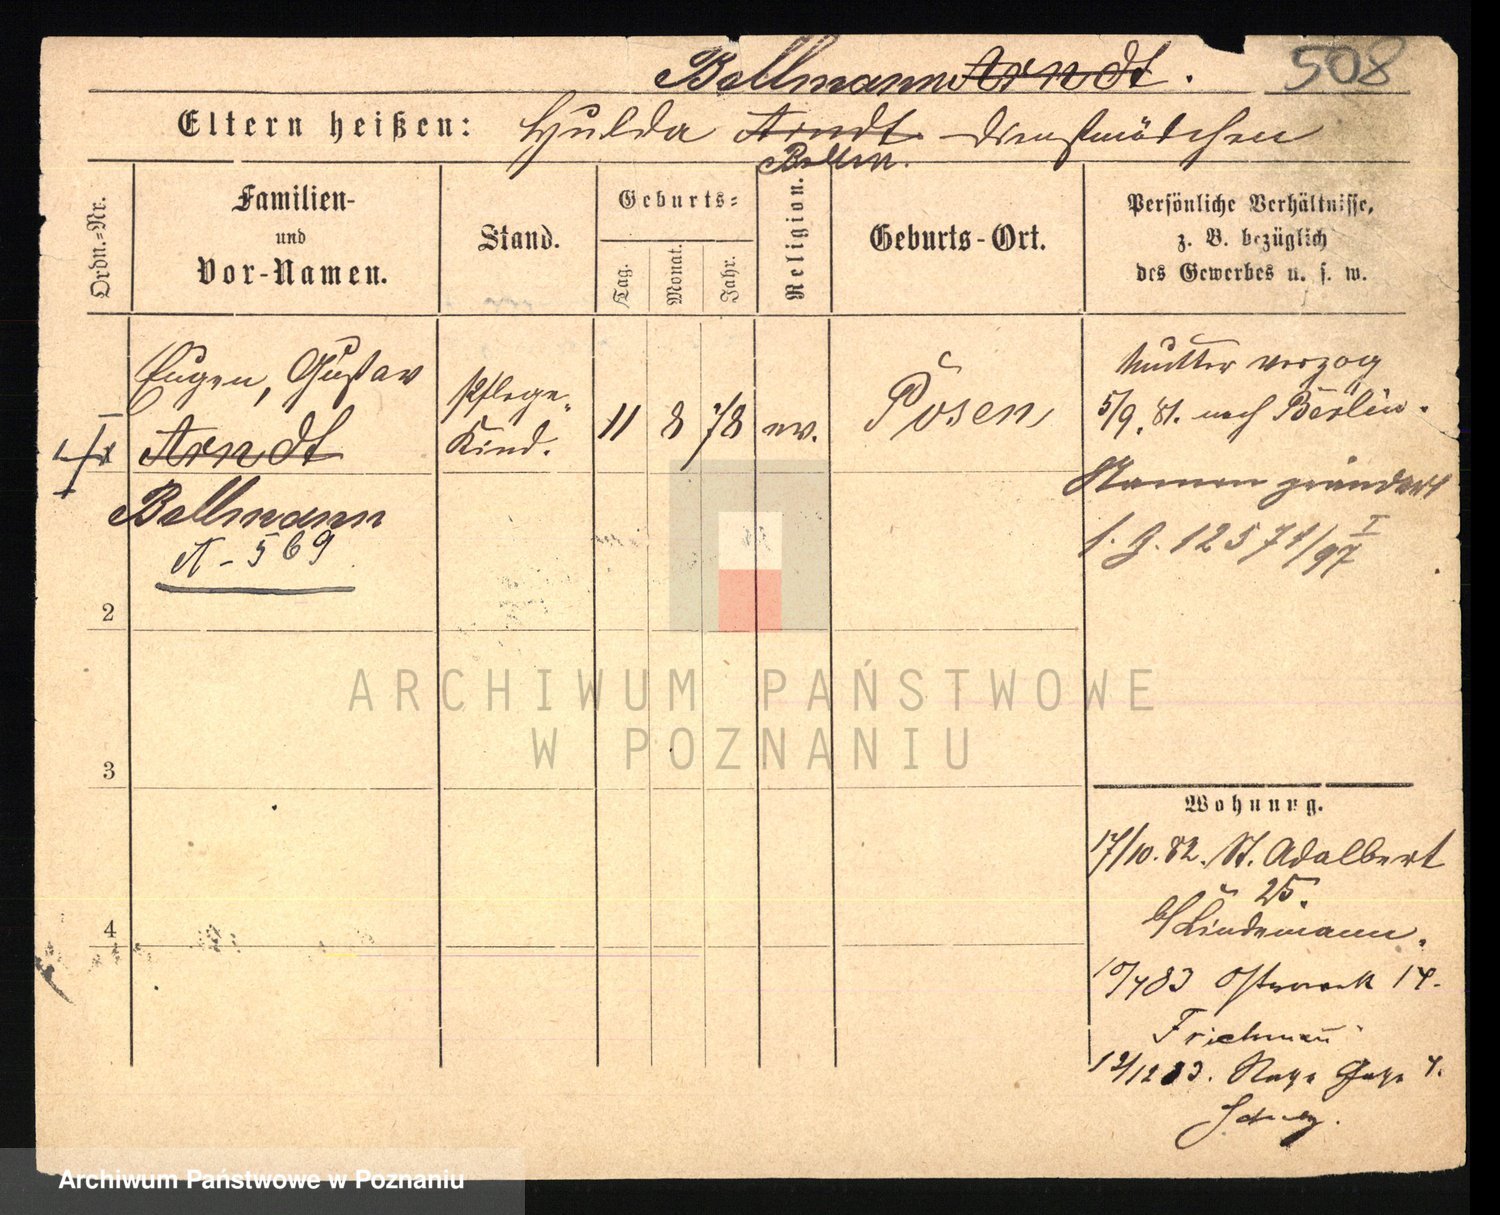 Bellmann Arndt.
508
Eltern heißen: Hulda Arndt Dienstmädchen
Bellm.
Ordn.-Nr.
Familien-
und
Vor-Namen.
Stand.
Geburts-
Tag.
Monat.
Jahr.
Religion.
Geburts-Ort.
Persönliche Verhältnisse,
z. B. bezüglich
des Gewerbes u. s. w.
Eugen, Gustav
Arndt
Bellmann
N-569
Pflege-
Kind.
11 8 78 ev.
Posen
Mutter verzog
5/9.81. nach Berlin.
Namen geändert
f. J. 12571/97 I
2
3
4
ARCHIWUM PAŃSTWOWE
W POZNANIU
Wohnung.
17/10.82. St. Adalbert
25.
b/Lindemann.
10/4 83 14.
12/12 83. 4.
Archiwum Państwowe w Poznaniu